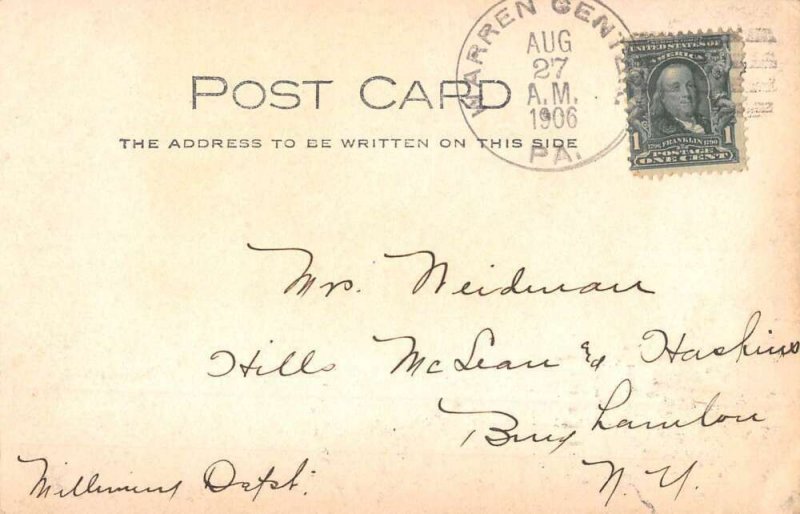 WARREN CENTER
AUG
27
A.M.
1906
PA.
UNITED STATES OF
AMERICA
1 1
1706 FRANKLIN 1790
POSTAGE
ONE CENT
POST CARD
THE ADDRESS TO BE WRITTEN ON THIS SIDE
Mrs. Weidman
Hills McLean & Haskins
Binghamton
N. Y.
Millinery Dept.